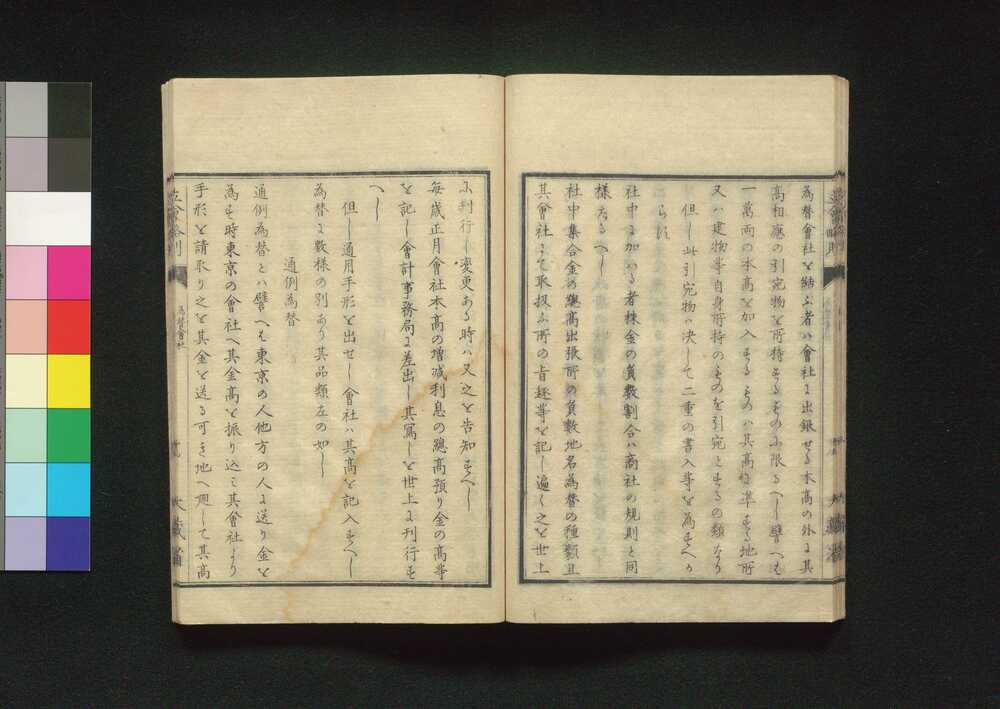 為替會社を結ふ者ハ會社に出銀せる本高の外に其
高相應の引宛物を所持せるものに限るへし譬へは
一萬両の本高を加入するものハ其高に準する地所
又ハ建物等自身所持のものを引宛とするの類なり
但し此引宛物ハ决して二重の書入等を為すへか
らす
社中に加ハる者株金の員數割合ハ商社の規則と同
樣たるへし
社中集合金の總高出張所の員數地名為替の種類且
其會社にて取扱ふ所の旨趣等を記し遍く之を世上
に刊行し変更ある時ハ又之を告知すへし
每歳正月會社本高の増减利息の總高預り金の高等
を記し會計事務局に差出し其寫しを世上に刊行す
へし
但し通用手形を出せし會社ハ其高を記入すへし
為替に數樣の別あり其品類左の如し
通例為替
通例為替とハ譬へは東京の人他方の人に送り金を
為す時東京の會社へ其金高を振り込ミ其會社より
手形を請取り之を其金を送る可き地へ廻して其高
為替會社
大藏省